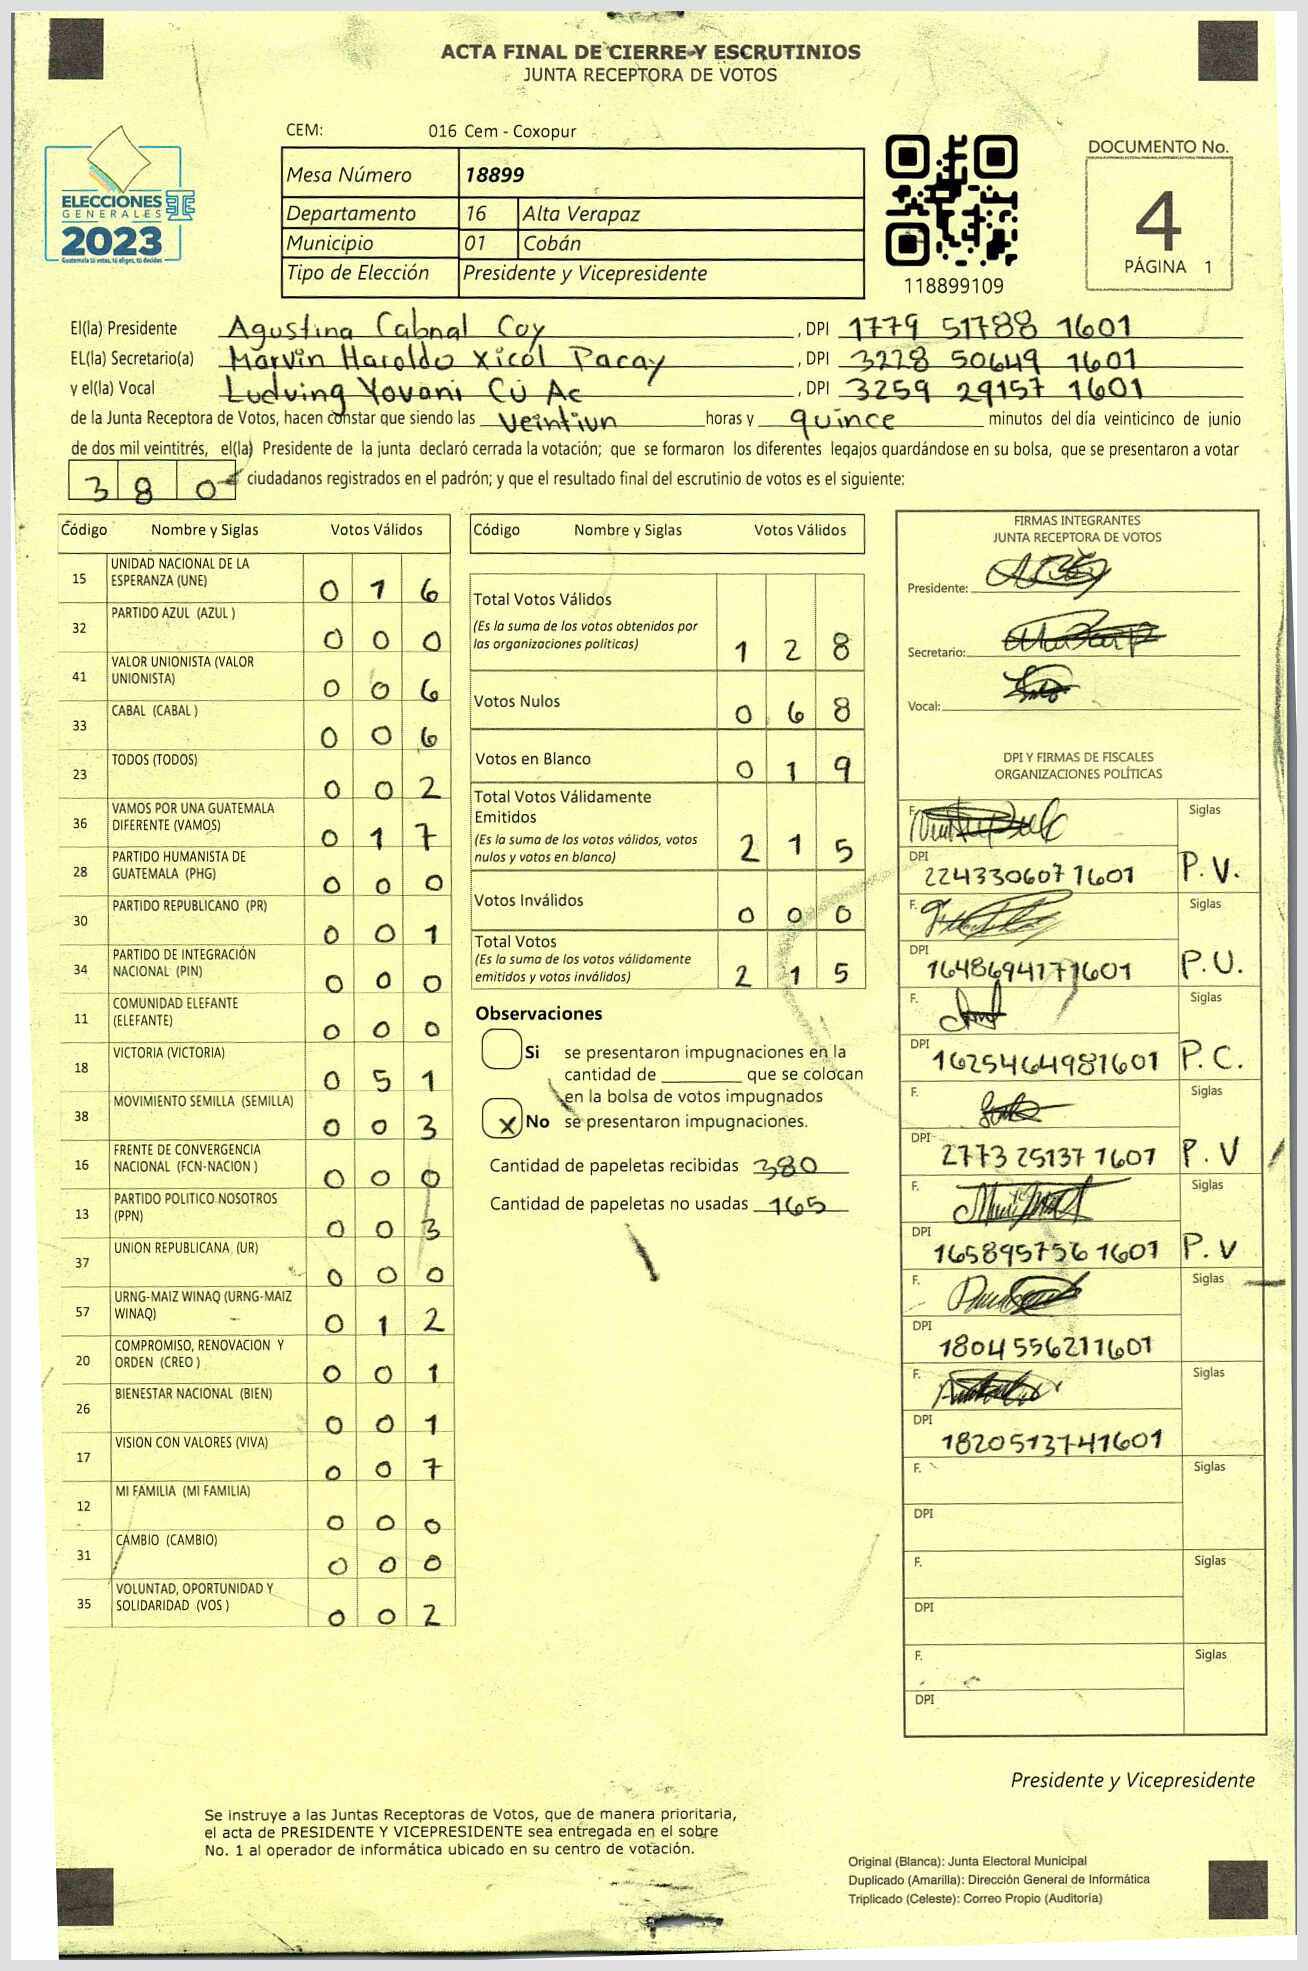 ACTA FINAL DE CIERRE Y ESCRUTINIOS
JUNTA RECEPTORA DE VOTOS
CEM: 016 Cem - Coxopur
ELECCIONES
GENERALES
2023
Guatemala tú votas, tú eliges, tú decides
Mesa Número 18899
Departamento 16 Alta Verapaz
Municipio 01 Cobán
Tipo de Elección Presidente y Vicepresidente
118899109
DOCUMENTO No.
4
PÁGINA 1
El(la) Presidente Agustina Cabnal Coy, DPI 1779 51788 1601
EL(la) Secretario(a) Marvin Haroldo Xicol Pacay, DPI 3228 50649 1601
y el(la) Vocal Ludving Yovani Cú Ac, DPI 3259 29157 1601
de la Junta Receptora de Votos, hacen constar que siendo las Veintiun horas y quince minutos del día veinticinco de junio
de dos mil veintitrés, el(la) Presidente de la junta declaró cerrada la votación; que se formaron los diferentes legajos guardándose en su bolsa, que se presentaron a votar
380 ciudadanos registrados en el padrón; y que el resultado final del escrutinio de votos es el siguiente:
Código Nombre y Siglas Votos Válidos
15 UNIDAD NACIONAL DE LA ESPERANZA (UNE) 0 1 6
32 PARTIDO AZUL (AZUL ) 0 0 0
41 VALOR UNIONISTA (VALOR UNIONISTA) 0 0 6
33 CABAL (CABAL ) 0 0 6
23 TODOS (TODOS) 0 0 2
36 VAMOS POR UNA GUATEMALA DIFERENTE (VAMOS) 0 1 7
28 PARTIDO HUMANISTA DE GUATEMALA (PHG) 0 0 0
30 PARTIDO REPUBLICANO (PR) 0 0 1
34 PARTIDO DE INTEGRACIÓN NACIONAL (PIN) 0 0 0
11 COMUNIDAD ELEFANTE (ELEFANTE) 0 0 0
18 VICTORIA (VICTORIA) 0 5 1
38 MOVIMIENTO SEMILLA (SEMILLA) 0 0 3
16 FRENTE DE CONVERGENCIA NACIONAL (FCN-NACION ) 0 0 0
13 PARTIDO POLITICO NOSOTROS (PPN) 0 0 3
37 UNION REPUBLICANA (UR) 0 0 0
57 URNG-MAIZ WINAQ (URNG-MAIZ WINAQ) 0 1 2
20 COMPROMISO, RENOVACION Y ORDEN (CREO ) 0 0 1
26 BIENESTAR NACIONAL (BIEN) 0 0 1
17 VISION CON VALORES (VIVA) 0 0 7
12 MI FAMILIA (MI FAMILIA) 0 0 0
31 CAMBIO (CAMBIO) 0 0 0
35 VOLUNTAD, OPORTUNIDAD Y SOLIDARIDAD (VOS ) 0 0 2
Código Nombre y Siglas Votos Válidos
Total Votos Válidos 1 2 8
(Es la suma de los votos obtenidos por
las organizaciones políticas)
Votos Nulos 0 6 8
Votos en Blanco 0 1 9
Total Votos Válidamente
Emitidos 2 1 5
(Es la suma de los votos válidos, votos
nulos y votos en blanco)
Votos Inválidos 0 0 0
Total Votos 2 1 5
(Es la suma de los votos válidamente
emitidos y votos inválidos)
Observaciones
Si se presentaron impugnaciones en la
cantidad de ________ que se colocan
en la bolsa de votos impugnados
X No se presentaron impugnaciones.
Cantidad de papeletas recibidas 380
Cantidad de papeletas no usadas 165
FIRMAS INTEGRANTES
JUNTA RECEPTORA DE VOTOS
Presidente:
Secretario:
Vocal:
DPI Y FIRMAS DE FISCALES
ORGANIZACIONES POLÍTICAS
F. Siglas
DPI 224330607 1601 P.V.
F. Siglas
DPI 1648694171601 P.U.
F. Siglas
DPI 1625464981601 P.C.
F. Siglas
DPI 2773 25137 1601 P.V
F. Siglas
DPI 165895756 1601 P.V
F. Siglas
DPI 1804556211601
F. Siglas
DPI 1820513741601
F. Siglas
DPI
F. Siglas
DPI
F. Siglas
DPI
Presidente y Vicepresidente
Se instruye a las Juntas Receptoras de Votos, que de manera prioritaria,
el acta de PRESIDENTE Y VICEPRESIDENTE sea entregada en el sobre
No. 1 al operador de informática ubicado en su centro de votación.
Original (Blanca): Junta Electoral Municipal
Duplicado (Amarilla): Dirección General de Informática
Triplicado (Celeste): Correo Propio (Auditoría)